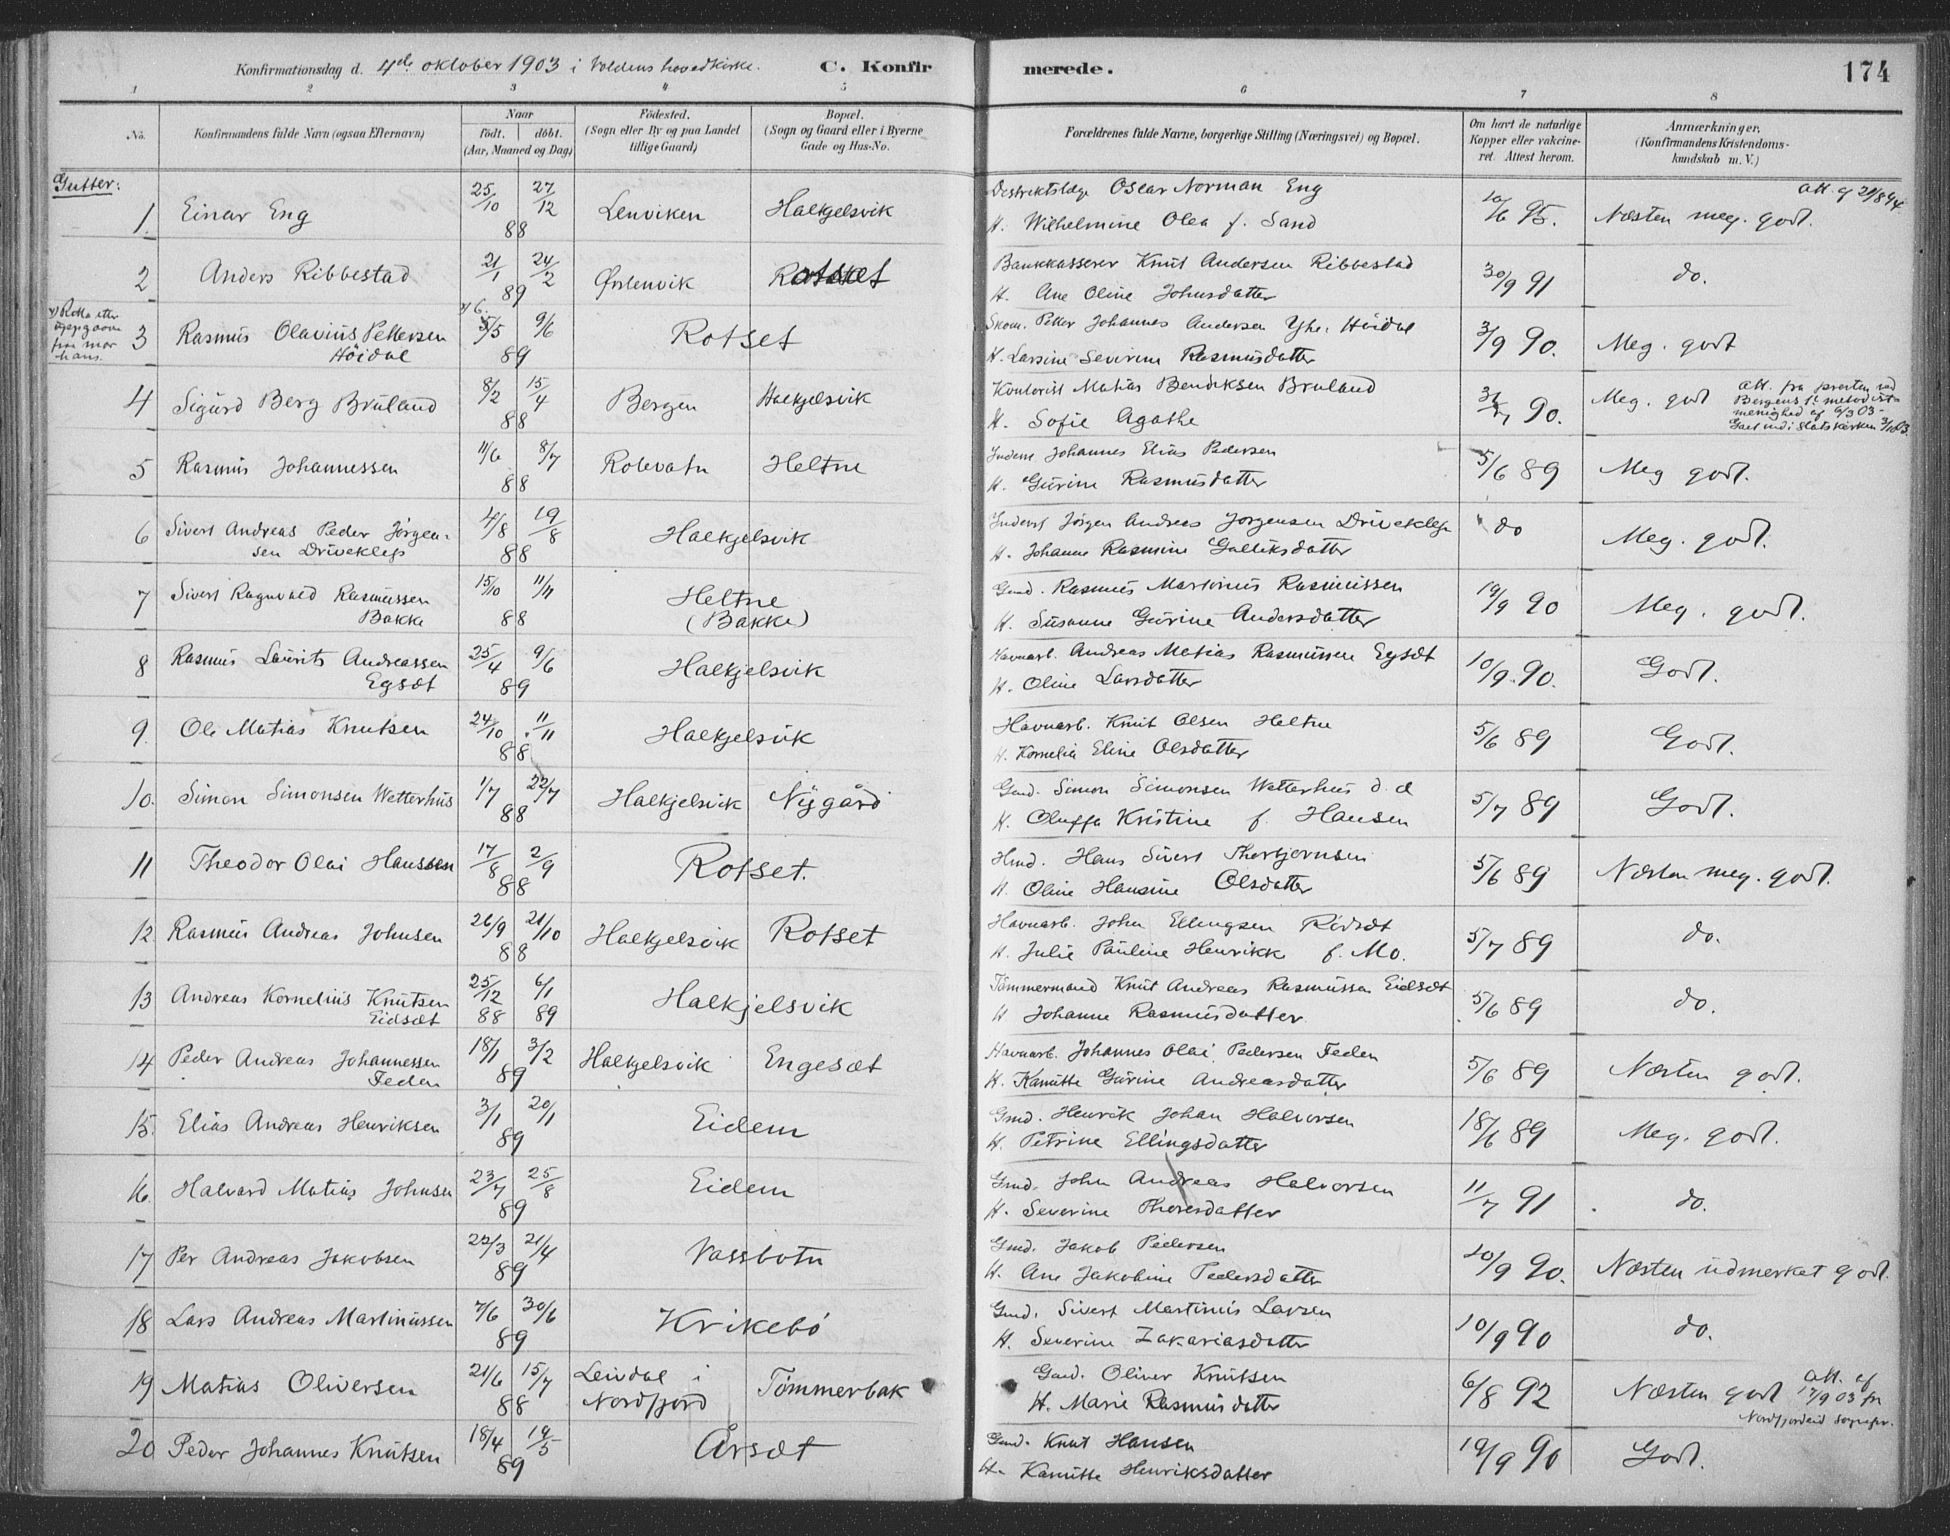 Konfirmationsdag d. 4de oktober 1903 i Voldens hovedkirke. C. Konfir merede. 174
1 2 3 4 5 6 7 8
No. Konfirmandens fulde Navn (ogsaa Efternavn) Naar født. døbt. (Aar, Maaned og Dag) Fødested. (Sogn eller By og paa Landet tillige Gaard) Bopæl. (Sogn og Gaard eller i Byerne Gade og Hus-No. Forældrenes fulde Navne, borgerlige Stilling (Næringsvei) og Bopæl. Om havt de naturlige Kopper eller vakcineret. Attest herom. Anmærkninger. (Konfirmandens Kristendomskundskab m. V.)
Gutter:
1. Einar Eng 25/10 27/12 88 Lenviken Halkjelsvik Destriktslæge Oscar Norman Eng
H. Wilhelmine Olea f. Sand 10/6 95. Næsten meg. godt. att. af 29/8 94.
2 Anders Ribbestad 21/1 24/2 89 Ørstenvik Rotset Bankkasserer Knut Andersen Ribbestad
H. Ane Oline Johnsdatter 30/9 91 do.
3 Rasmus Olavius Pettersen Høidal 5/5 9/6 89 Rotset Skom. Petter Johannes Andersen Høidal
H. Larsine Severine Rasmusdatter 3/9 90. Meg. godt
fra mor hans.
4 Sigurd Berg Bruland 8/2 15/4 88 Bergen Halkjelsvik Kontorist Matias Bendiksen Bruland
H. Sofie Agathe 90. Meg. godt att. fra presten ved
Bergens 1ste metodist-
menighed af 6/3 03 -
5 Rasmus Johannessen 11/6 8/7 88 Rotevatn Heltne Inderst Johannes Elias Pedersen
H. Gurine Rasmusdatter 5/6 89 Meg godt.
6 Sivert Andreas Peder Jörgensen Driveklep 4/8 19/8 88 Halkjelsvik Inderst Jörgen Andreas Jorgensen Driveklep
H. Johanne Rasmine Gulliksdatter do Meg. godt.
7 Sivert Ragnvald Rasmussen Bakke 15/10 11/11 88 Heltne (Bakke) Gmd. Rasmus Martinus Rasmussen
H. Susanne Gurine Andersdatter 19/9 90 Meg. godt.
8 Rasmus Laurits Andreassen Egsæt 25/4 9/6 89 Halkjelsvik Havnarb. Andreas Matias Rasmussen Egsæt
H. Oline Larsdatter 10/9 90. Godt.
9. Ole Matias Knutsen 24/10 11/11 88 Halkjelsvik Havnarb. Knut Olsen Heltne
H. Kornelia Eline Olsdatter 5/6 89 Godt.
10. Simon Simonsen Wetterhus 1/7 22/7 88 Halkjelsvik Nygård Gmd. Simon Simonsen Wetterhus d. d
H. Oluffa Kristine f. Hansen 5/7 89 Godt.
11 Theodor Olai Hanssen 17/8 2/9 88 Rotset. Hmd. Hans Sivert Thorbjørnsen
H. Oline Hansine Olsdatter 5/6 89 Næsten meg. godt.
12 Rasmus Andreas Johnsen 26/9 21/10 88 Halkjelsvik Rotset Havnarb. John Ellingsen Rödsæt
H. Julie Pauline Henrikke f. Mo. 5/7 89 do.
13 Andreas Kornelius Knutsen Eidsæt 25/12 88 6/1 89 Halkjelsvik Tömmermand Knut Andreas Rasmussen Eidsæt
H Johanne Rasmusdatter 5/6 89 do.
14 Peder Andreas Johannessen Feden 18/1 3/2 89 Halkjelsvik Engesæt Havnarb. Johannes Olai Pedersen Feden
H. Kanutte Gurine Andreasdatter 5/6 89 Næsten godt.
15. Elias Andreas Henriksen 3/1 20/1 89 Eidem Gmd. Henrik Johan Halvorsen
H. Petrine Ellingsdatter 18/6 89 Meg. godt.
16. Halvard Matias Johnsen 23/7 25/8 89 Eidem Gmd. John Andreas Halvorsen
H. Severine Thoresdatter 11/7 91 do.
17 Per Andreas Jakobsen 22/3 21/4 89 Vassbotn Gmd. Jakob Pedersen
H. Ane Jakobine Pedersdatter 10/9 90. Næsten udmerket godt.
18 Lars Andreas Martinussen 7/6 30/6 89 Krikebö Gmd. Sivert Martinus Larsen
H. Severine Zakariasdatter 10/9 90 do.
19 Matias Oliversen 21/6 15/7 88 Leivdal i Nordfjord Tömmerbak Gmd. Oliver Knutsen
H. Marie Rasmusdatter 6/8 92 Næsten godt att. af
17/9 03 fra
Nordfjordeid sognepr.
20 Peder Johannes Knutsen 18/4 19/5 89 Årsæt Gmd. Knut Hansen
H. Kanutte Henriksdatter 19/9 90 Godt.